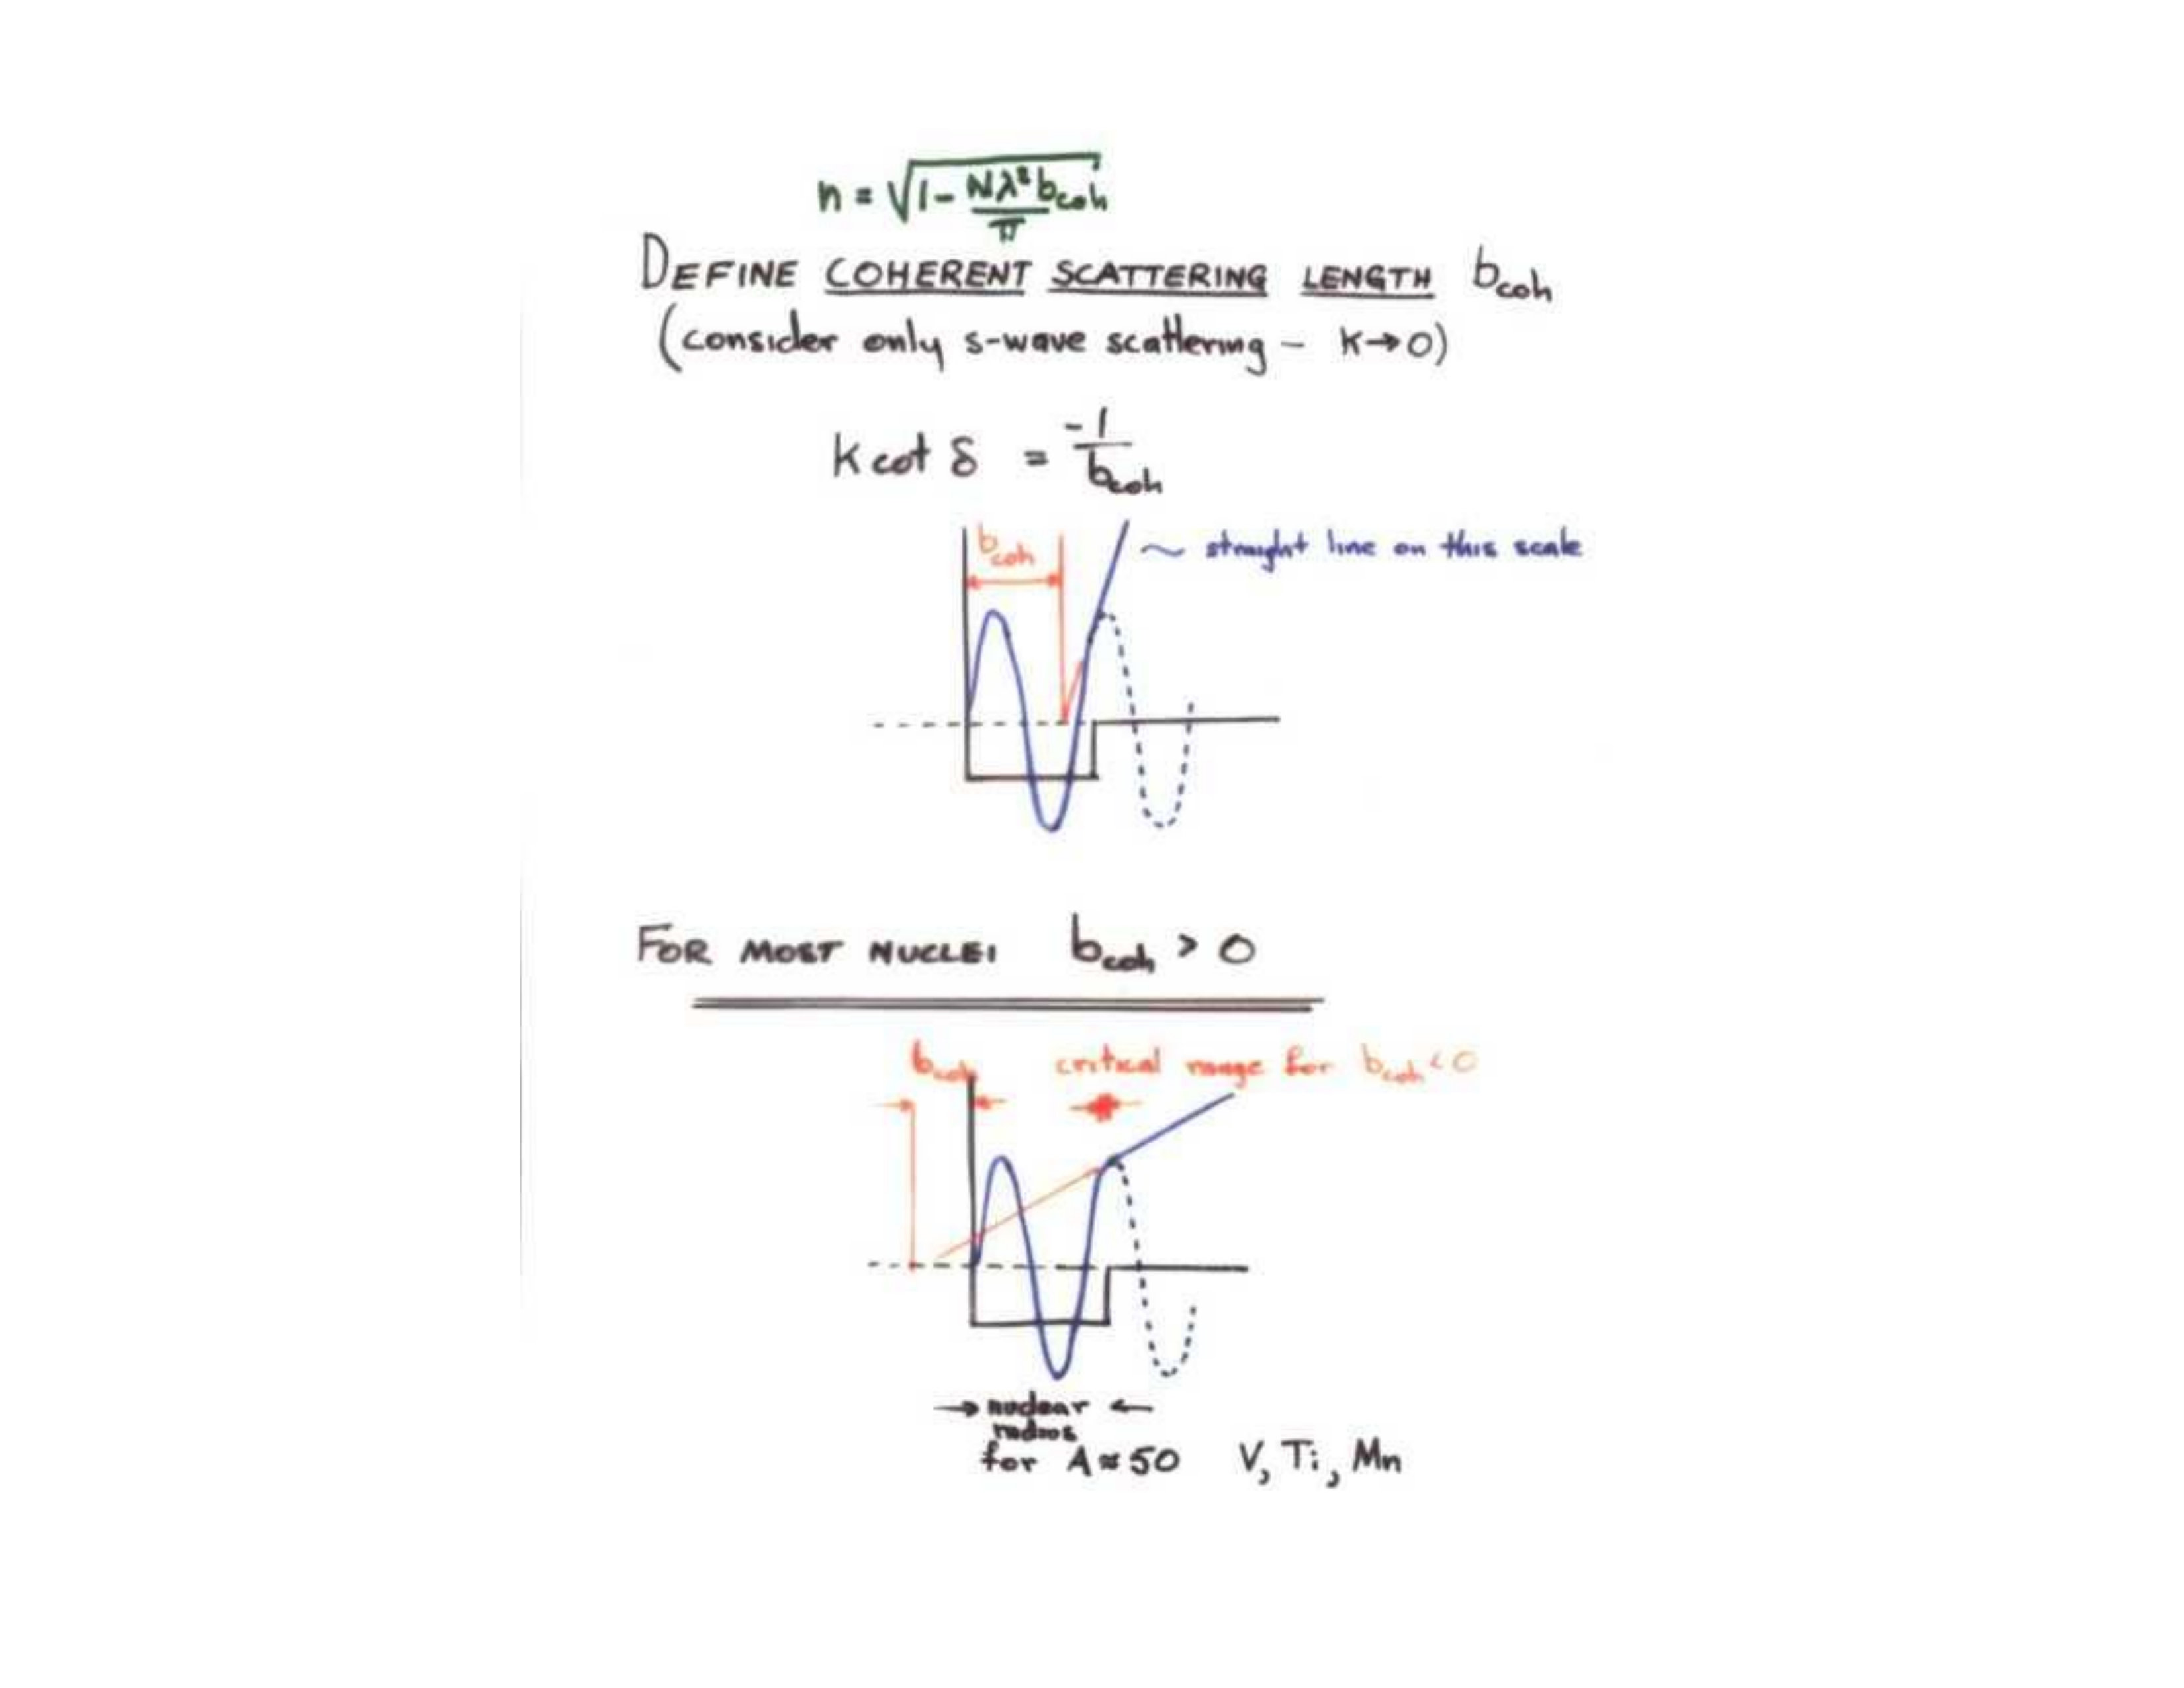 n = √1 - Nλ²b_coh / π
DEFINE COHERENT SCATTERING LENGTH b_coh
(consider only s-wave scattering – K→0)
K cot δ = -1 / b_coh
b_coh
~ straight line on this scale
FOR MOST NUCLEI b_coh > 0
b_coh critical range for b_coh < 0
→ nuclear ←
radius
for A ≈ 50 V, Ti, Mn